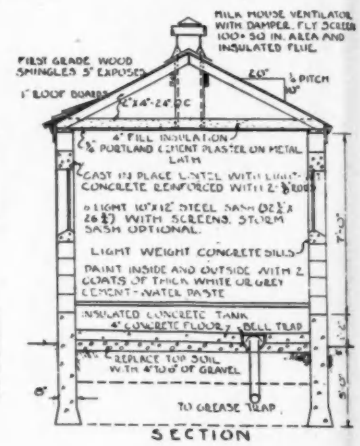 MILK HOUSE VENTILATOR
WITH DAMPER, FLY SCREEN
100 SQ IN. AREA AND
INSULATED FLUE
FIRST GRADE WOOD
SHINGLES 5" EXPOSED
1" ROOF BOARDS
20"
¼ PITCH
10"
2"X4"-24" O C
4" FILL INSULATION
PORTLAND CEMENT PLASTER ON METAL
LATH
CAST IN PLACE LINTEL WITH
CONCRETE REINFORCED WITH 2-
6 LIGHT 10"X12" STEEL SASH (32½ X
26½) WITH SCREENS. STORM
SASH OPTIONAL.
LIGHT WEIGHT CONCRETE SILLS
PAINT INSIDE AND OUTSIDE WITH 2
COATS OF THICK WHITE OR GREY
CEMENT-WATER PASTE
INSULATED CONCRETE TANK
4" CONCRETE FLOOR
BELL TRAP
REPLACE TOP SOIL
WITH 4" TO 6" OF GRAVEL
8"
TO GREASE TRAP
7'-0"
3'-0"
SECTION